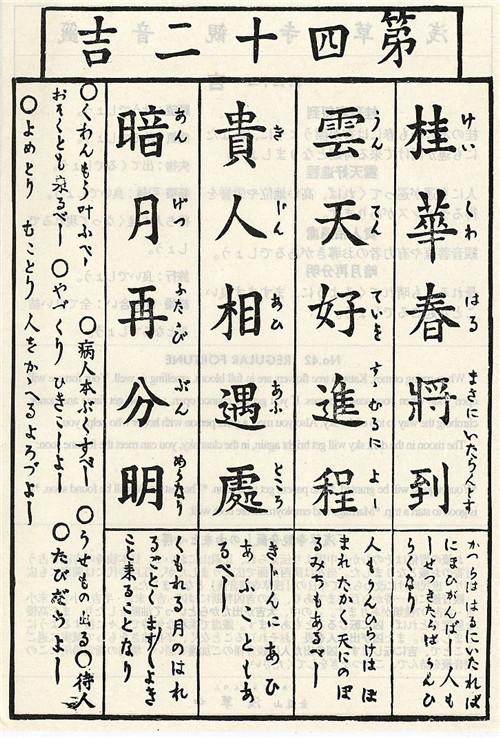 第四十二吉
けい くわ はる まさにいたらんとす
桂華春將到
かつらははるにいたれば
人も
しせつきたらばうんひ
らくなり
うん てん ていを すゝむるに よ
雲天好進程
人もうんひらけは ほ
まれたかく天にのぼ
るみちもあるべし
き じん あひ あふ ところ
貴人相遇處
きじんにあひ
あふこともあ
るべし
あん げつ ふたゝび ぶん めうなり
暗月再分明
くもれる月のはれ
るごとくます〳〵よき
こと来ることなり
〇くわんもうかなふべし 〇病人本ぶくすべし 〇うせもの出る〇待人
おそくとも来るべし 〇やづくりひきこしよし 〇たびだちよし
〇よめとり むことり人をかゝへるよろづよし